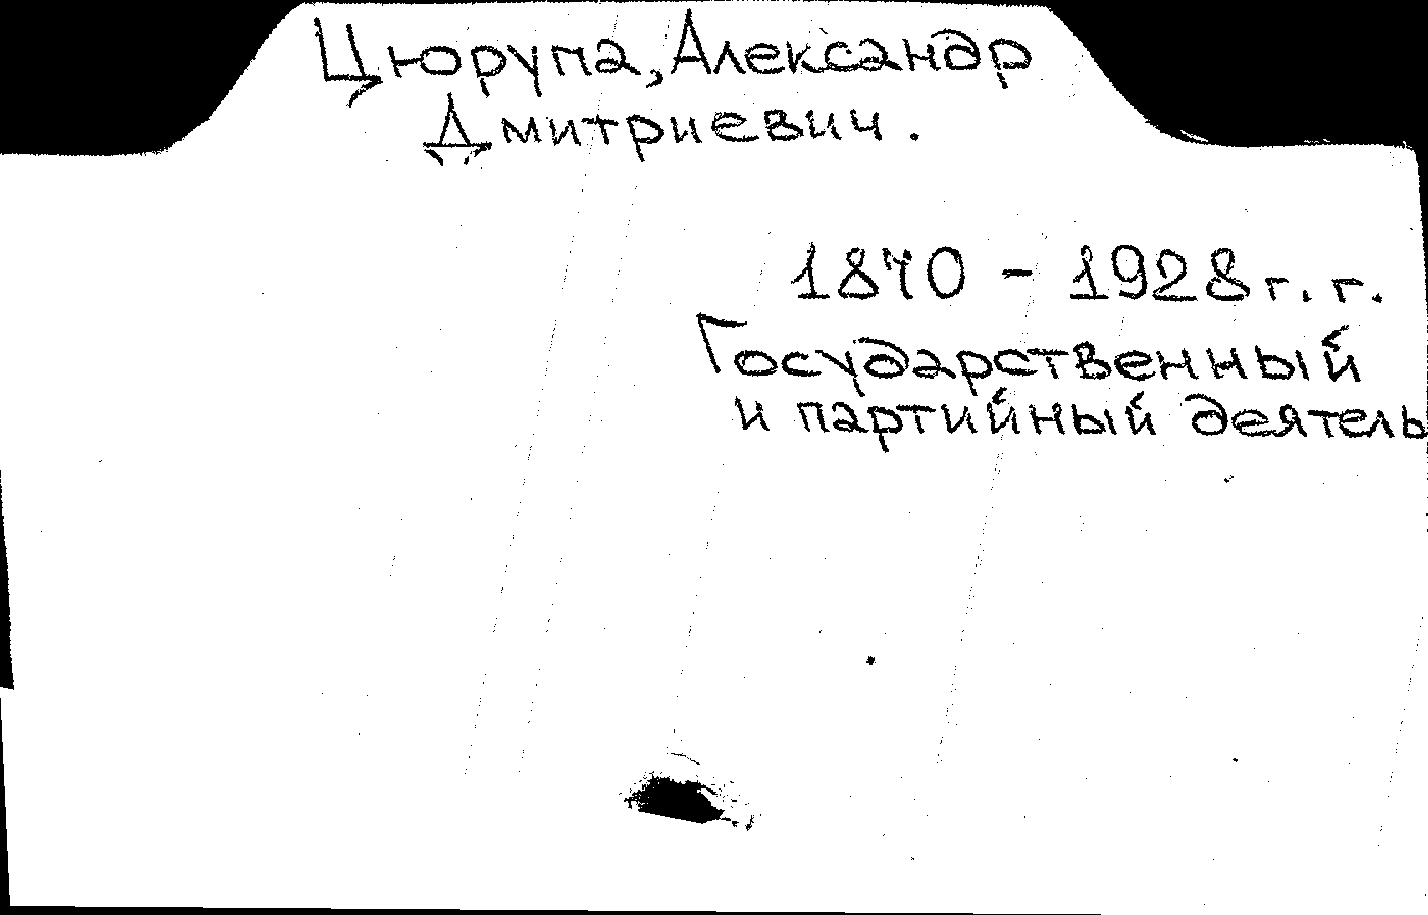 Цюрупа, Александр
Дмитриевич.
1870 - 1928 г. г.
Государственный
и партийный деятель